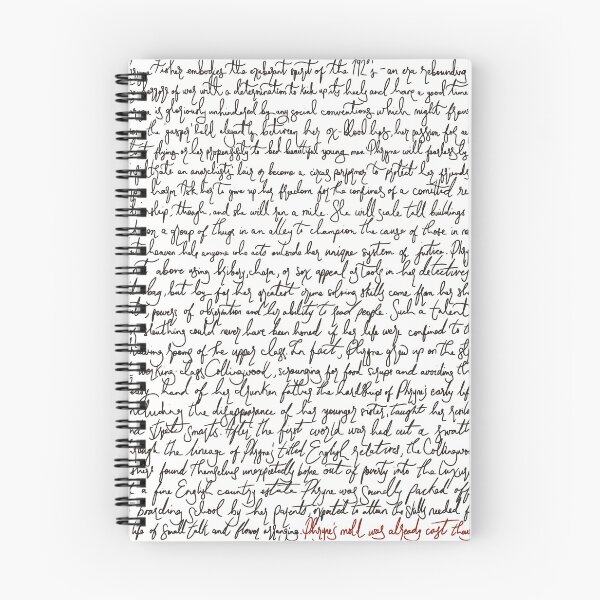 Fisher embodies the exuberant spirit of the 1920's - an era rebounding
horrors of war with a determination to kick up its heels and have a good time
is gloriously unhindered by any social conventions which might frown
the gasper held elegantly between her ox-blood lips, her passion for
flying or her propensity to bed beautiful young men Phryne will fearlessly
an anarchist's lair or become a circus performer to protect her friends
harm. Ask her to give up her freedom for the confines of a comitted re
ship, though, and she will run a mile. She will scale tall buildings
on a group of thugs in an alley to champion the cause of those in
heaven help anyone who acts outside her unique system of justice. Phry
above using bribery, charm, or sex appeal as tools in her detectives
but by far her greatest crime solving skills come from her
powers of observation and her ability to read people. Such a talent
sleuthing could never have been honed if her life were confined to
drawing rooms of the upper class. In fact, Phryne grew up on the
working-class Collingwood, scrounging for food scraps and avoiding the
hand of her drunken father the hardships of Phryne's early
including the disappearance of her younger sister, taught her
and street smarts. After the first world war had cut a swath
the lineage of Phryne's titled English relations, the Collingwood
found themselves unexpectedly borne out of poverty into the luxury
a fine English country estate Phryne was soundly packed off
boarding school by her parents, expected to attain the skills needed
life of small talk and flower arranging. Phryne's mold was already cast though